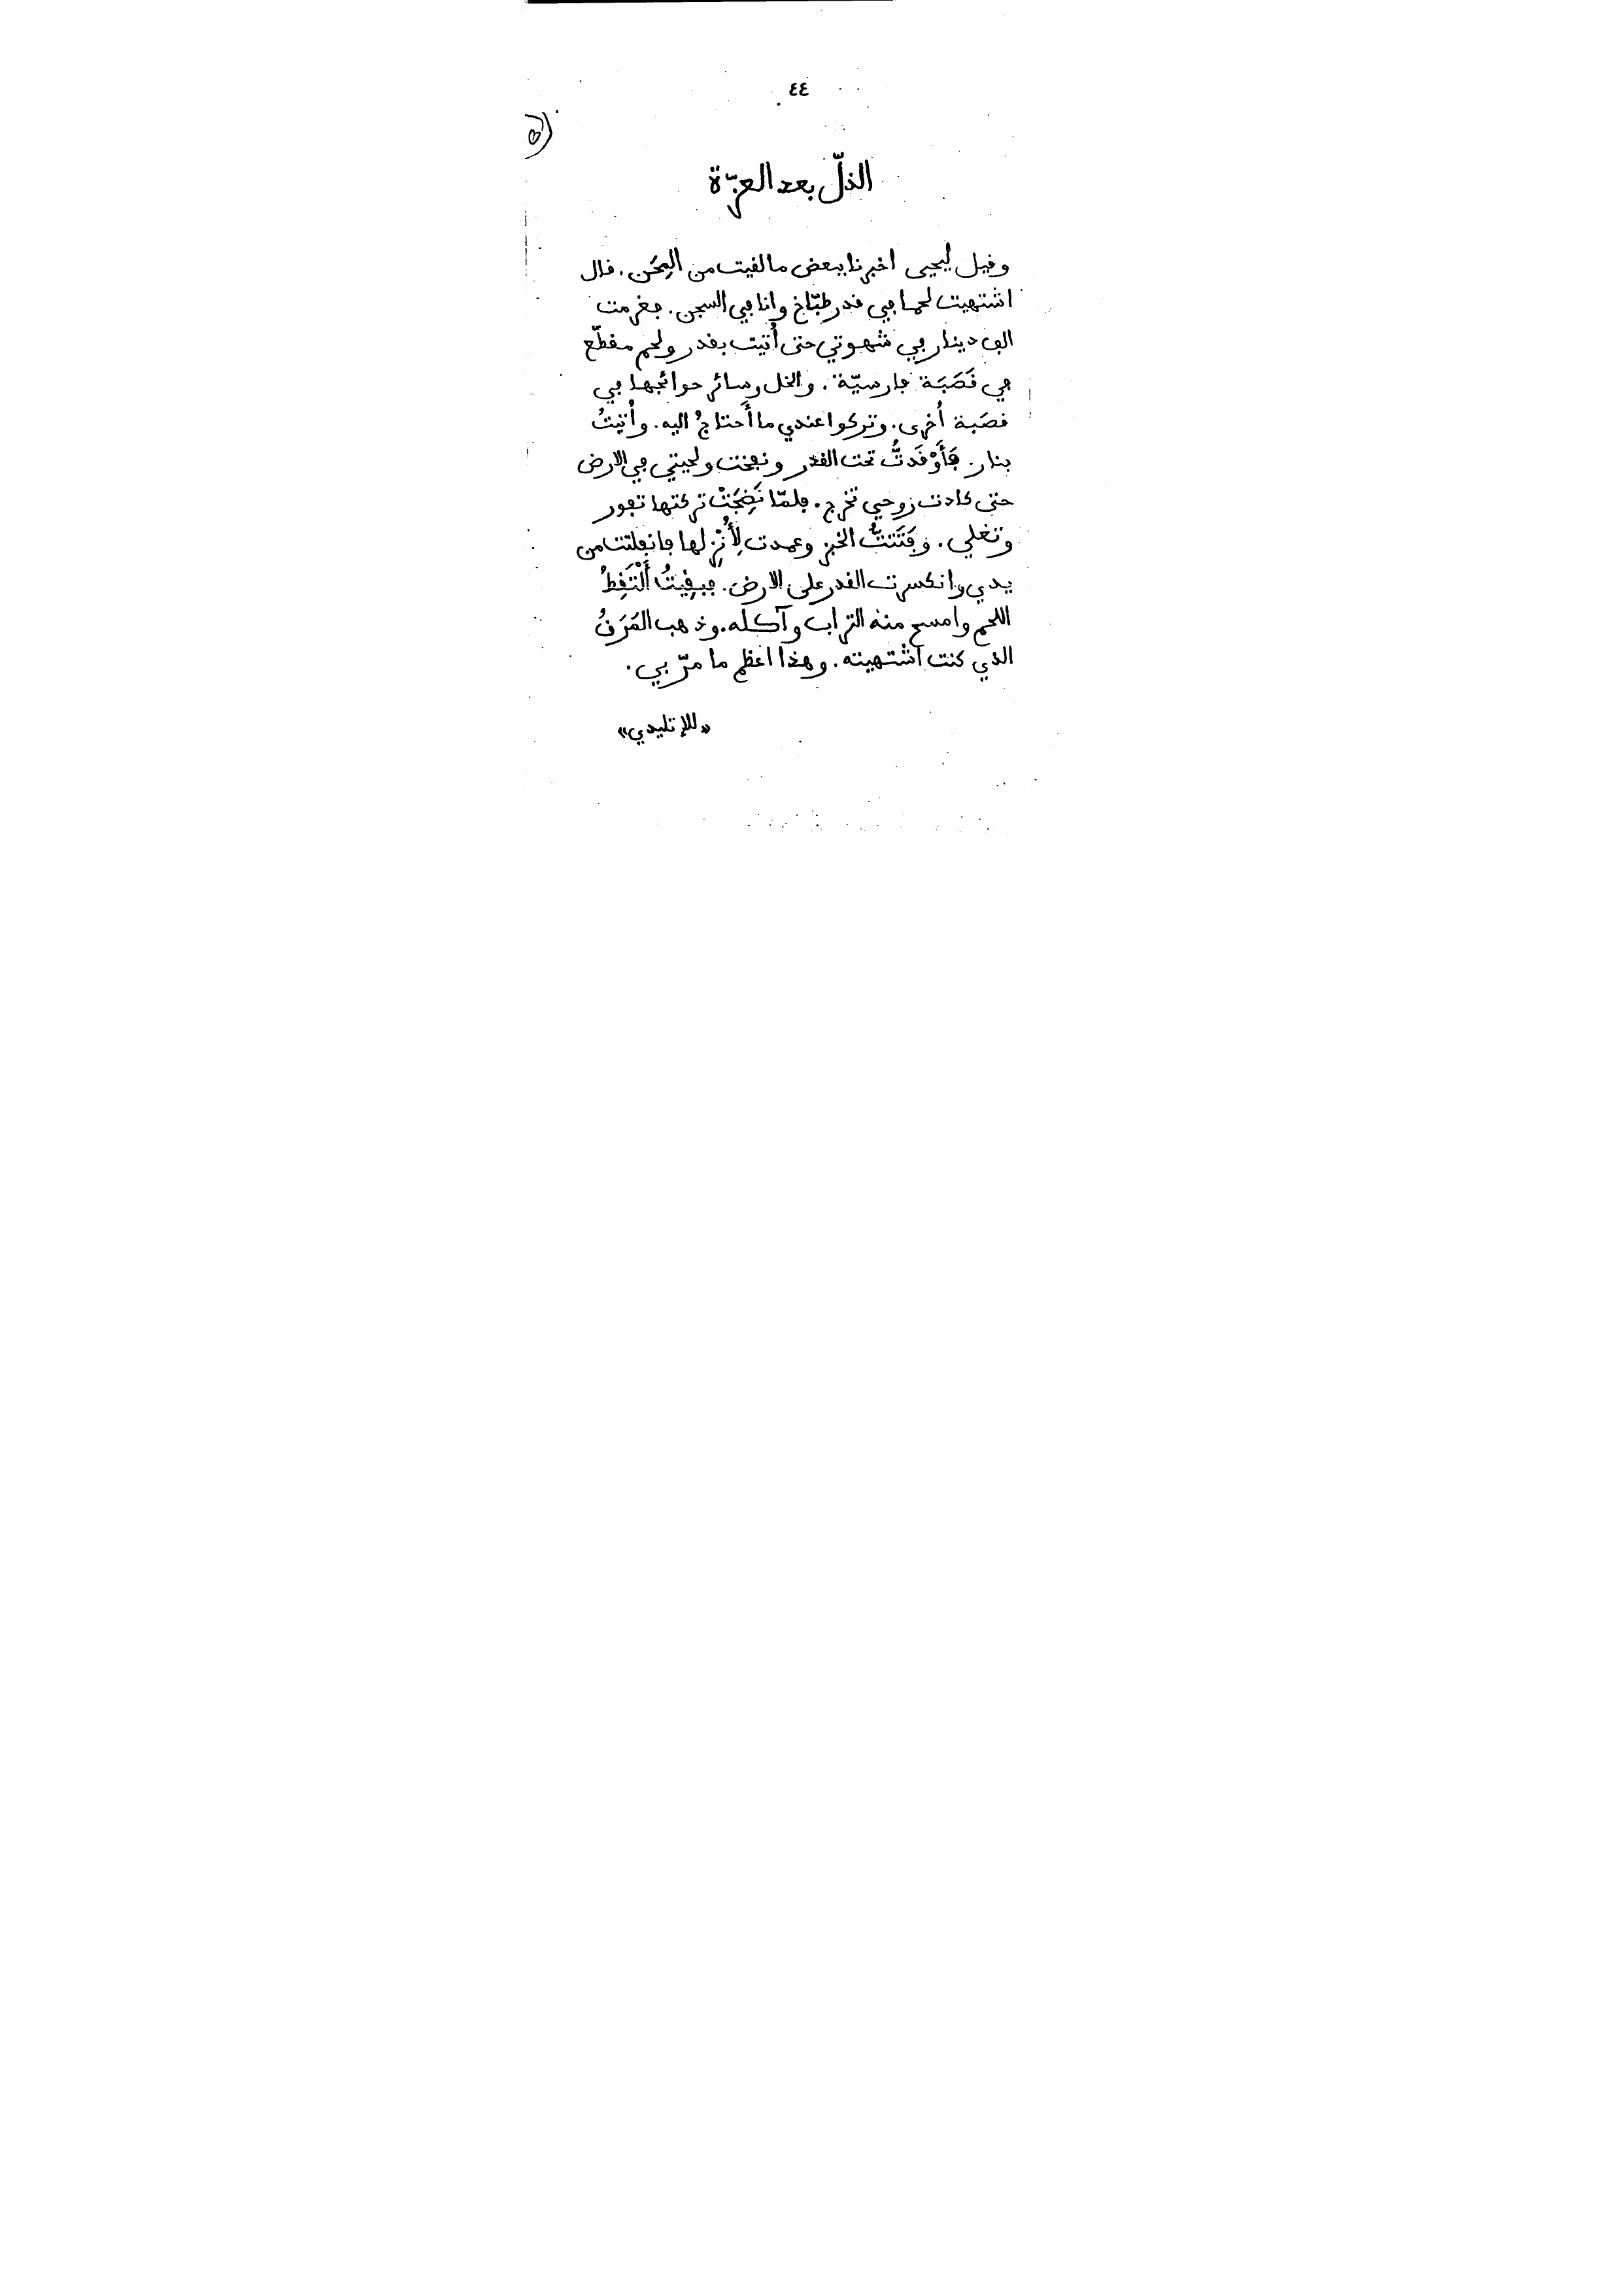 ٤٤
الذلّ بعد العزّة
وقيل ليحيى اخبرنا ببعض ما لقيت من المِحَن. قال
اشتهيت لحما في قدر طبّاخ وانا في السجن. فغرمت
الف دينار في شهوتي حتى أُتيت بقدر ولحم مقطّع
في قَصَبَة فارسيّة. والخل وسائر حوائجها في
قصَبة أُخرى. وتركوا عندي ما أَحتاجُ اليه. وأُتيتُ
بنار. فَأَوْقَدتُّ تحت القدر ونفخت ولحيتي في الارض
حتى كادت روحي تخرج. فلمّا نَضِجَتْ تركتها تفور
وتغلي. وفَتَتتُّ الخبز وعمدت لِأُنْزِلها فانفلتت من
يدي وانكسرت القدر على الارض. فبقِيتُ أَلْتَقِطُ
اللحم وامسح منه التراب وآكله. وذهب المَرَقُ
الذي كنت اشتهيته. وهذا اعظم ما مرّ بي.
«للإتليدي»